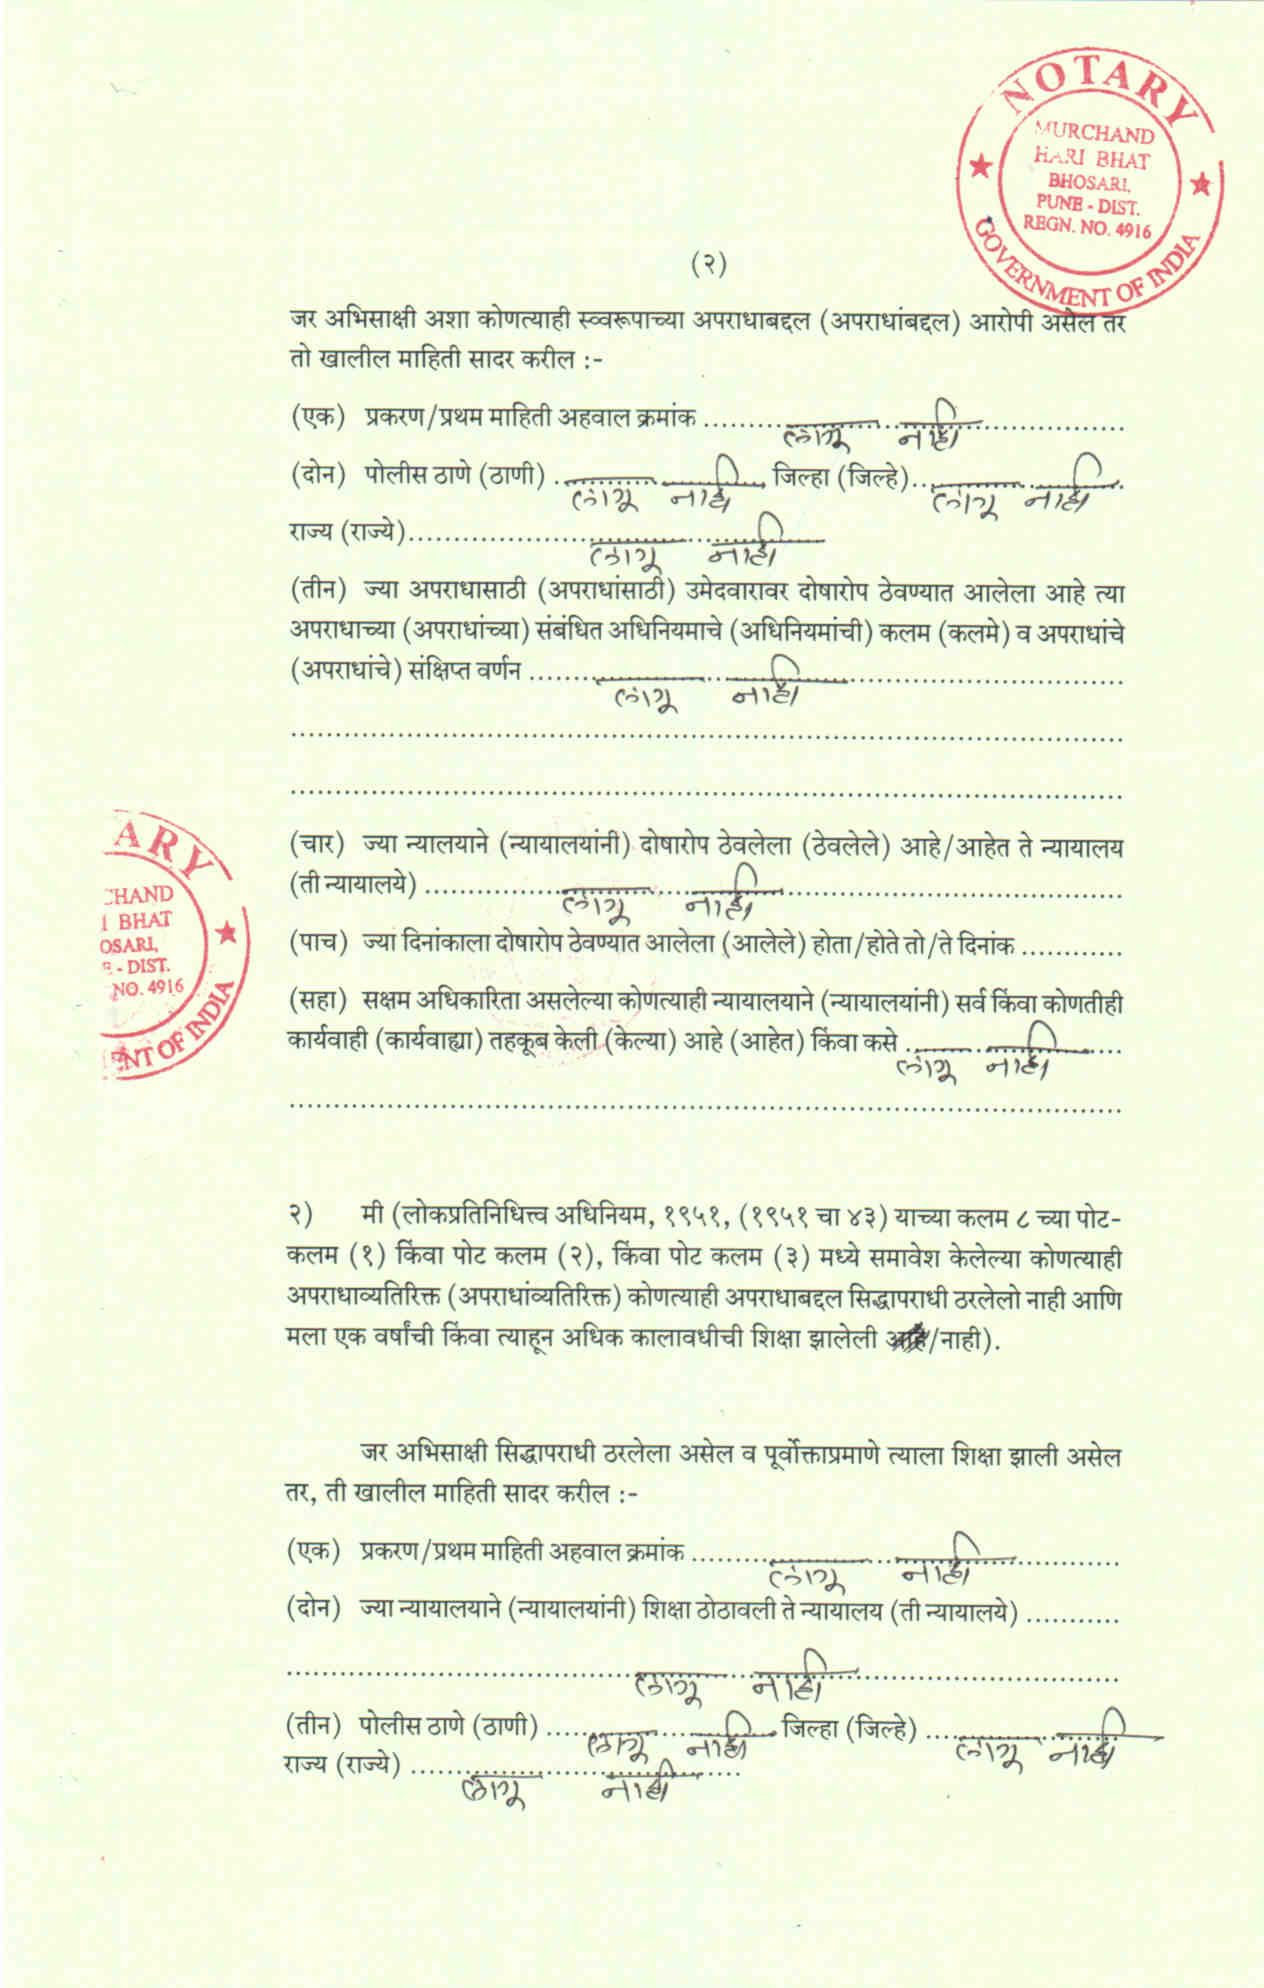 NOTARY
MURCHAND
HARI BHAT
BHOSARI,
PUNE - DIST.
REGN. NO. 4916
GOVERNMENT OF INDIA
(२)
जर अभिसाक्षी अशा कोणत्याही स्वरूपाच्या अपराधाबद्दल (अपराधांबद्दल) आरोपी असेल तर
तो खालील माहिती सादर करील :-
(एक) प्रकरण/प्रथम माहिती अहवाल क्रमांक .......... लागू नाही ..........
(दोन) पोलीस ठाणे (ठाणी) .......... लागू नाही .......... जिल्हा (जिल्हे) .......... लागू नाही ..........
राज्य (राज्ये) .......... लागू नाही
(तीन) ज्या अपराधासाठी (अपराधांसाठी) उमेदवारावर दोषारोप ठेवण्यात आलेला आहे त्या
अपराधाच्या (अपराधांच्या) संबंधित अधिनियमाचे (अधिनियमांची) कलम (कलमे) व अपराधांचे
(अपराधांचे) संक्षिप्त वर्णन .......... लागू नाही ..........
ARY
CHAND
I BHAT
OSARI,
E - DIST.
NO. 4916
ENT OF INDIA
(चार) ज्या न्यालयाने (न्यायालयांनी) दोषारोप ठेवलेला (ठेवलेले) आहे/आहेत ते न्यायालय
(ती न्यायालये) .......... लागू नाही ..........
(पाच) ज्या दिनांकाला दोषारोप ठेवण्यात आलेला (आलेले) होता/होते तो/ते दिनांक ............
(सहा) सक्षम अधिकारिता असलेल्या कोणत्याही न्यायालयाने (न्यायालयांनी) सर्व किंवा कोणतीही
कार्यवाही (कार्यवाह्या) तहकूब केली (केल्या) आहे (आहेत) किंवा कसे .......... लागू नाही ..........
२) मी (लोकप्रतिनिधित्त्व अधिनियम, १९५१, (१९५१ चा ४३) याच्या कलम ८ च्या पोट-
कलम (१) किंवा पोट कलम (२), किंवा पोट कलम (३) मध्ये समावेश केलेल्या कोणत्याही
अपराधाव्यतिरिक्त (अपराधांव्यतिरिक्त) कोणत्याही अपराधाबद्दल सिद्धापराधी ठरलेलो नाही आणि
मला एक वर्षांची किंवा त्याहून अधिक कालावधीची शिक्षा झालेली आहे/नाही).
जर अभिसाक्षी सिद्धापराधी ठरलेला असेल व पूर्वोक्ताप्रमाणे त्याला शिक्षा झाली असेल
तर, ती खालील माहिती सादर करील :-
(एक) प्रकरण/प्रथम माहिती अहवाल क्रमांक .......... लागू नाही ..........
(दोन) ज्या न्यायालयाने (न्यायालयांनी) शिक्षा ठोठावली ते न्यायालय (ती न्यायालये) ...........
.......... लागू नाही ..........
(तीन) पोलीस ठाणे (ठाणी) .......... लागू नाही .......... जिल्हा (जिल्हे) .......... लागू नाही
राज्य (राज्ये) .......... लागू नाही ..........